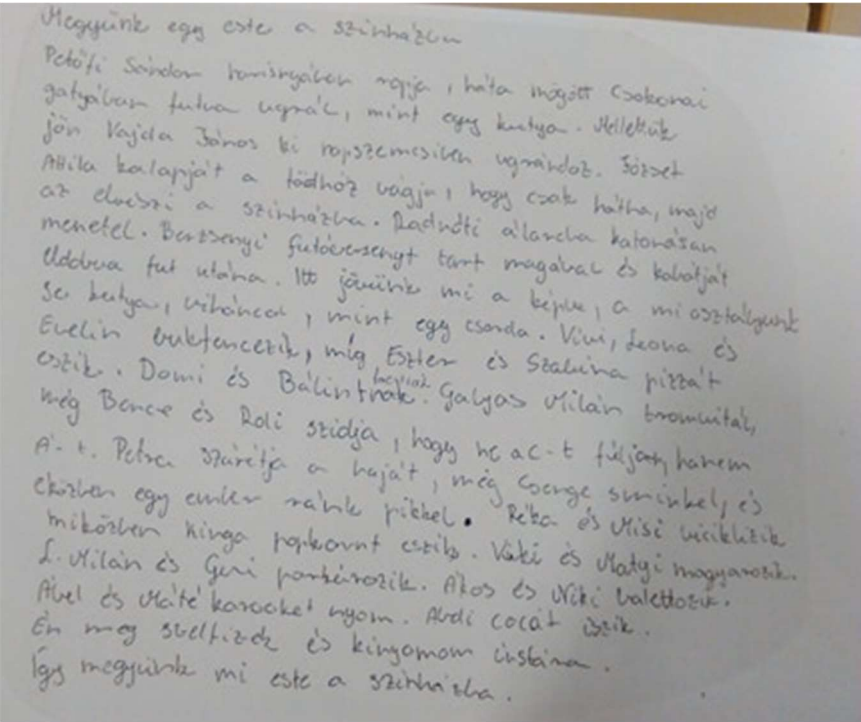 Megyünk egy este a színházba
Petőfi Sándor harisnyában ropja, háta mögött Csokonai
gatyában futva ugrál, mint egy kutya. Mellettük
jön Vajda János ki rapszemcsiben ugrándoz. József
Attila kalapját a földhöz vágja, hogy csak hátha, majd
az elveszi a színházba. Radnóti álarcba katonásan
menetel. Berzsenyi futóversenyt tart magával és kabátját
eldobva fut utána. Itt jövünk mi a képbe, a mi osztályunk
se kutya, viháncol, mint egy csorda. Vivi, Leona és
Evelin bukfencezik, míg Eszter és Szabina pizzát
eszik. Domi és Bálint Galyas Milán trombitál,
még Bence és Roli szidja, hogy ne a c-t fújjan, hanem
Á-t. Petra szárítja a haját, még Csenge sminkel, és
eközben egy ember ránk pikkel. Réka és Misi biciklizik
miközben Kinga popkornt eszik. Viki és Matyi magyarozik.
L. Milán és Geri parkúrozik. Ákos és Niki balettozik.
Ábel és Máté karaokét nyom. Andi colát iszik.
Én meg szelfizek és kinyomom instára.
Így megyünk mi este a színházba.